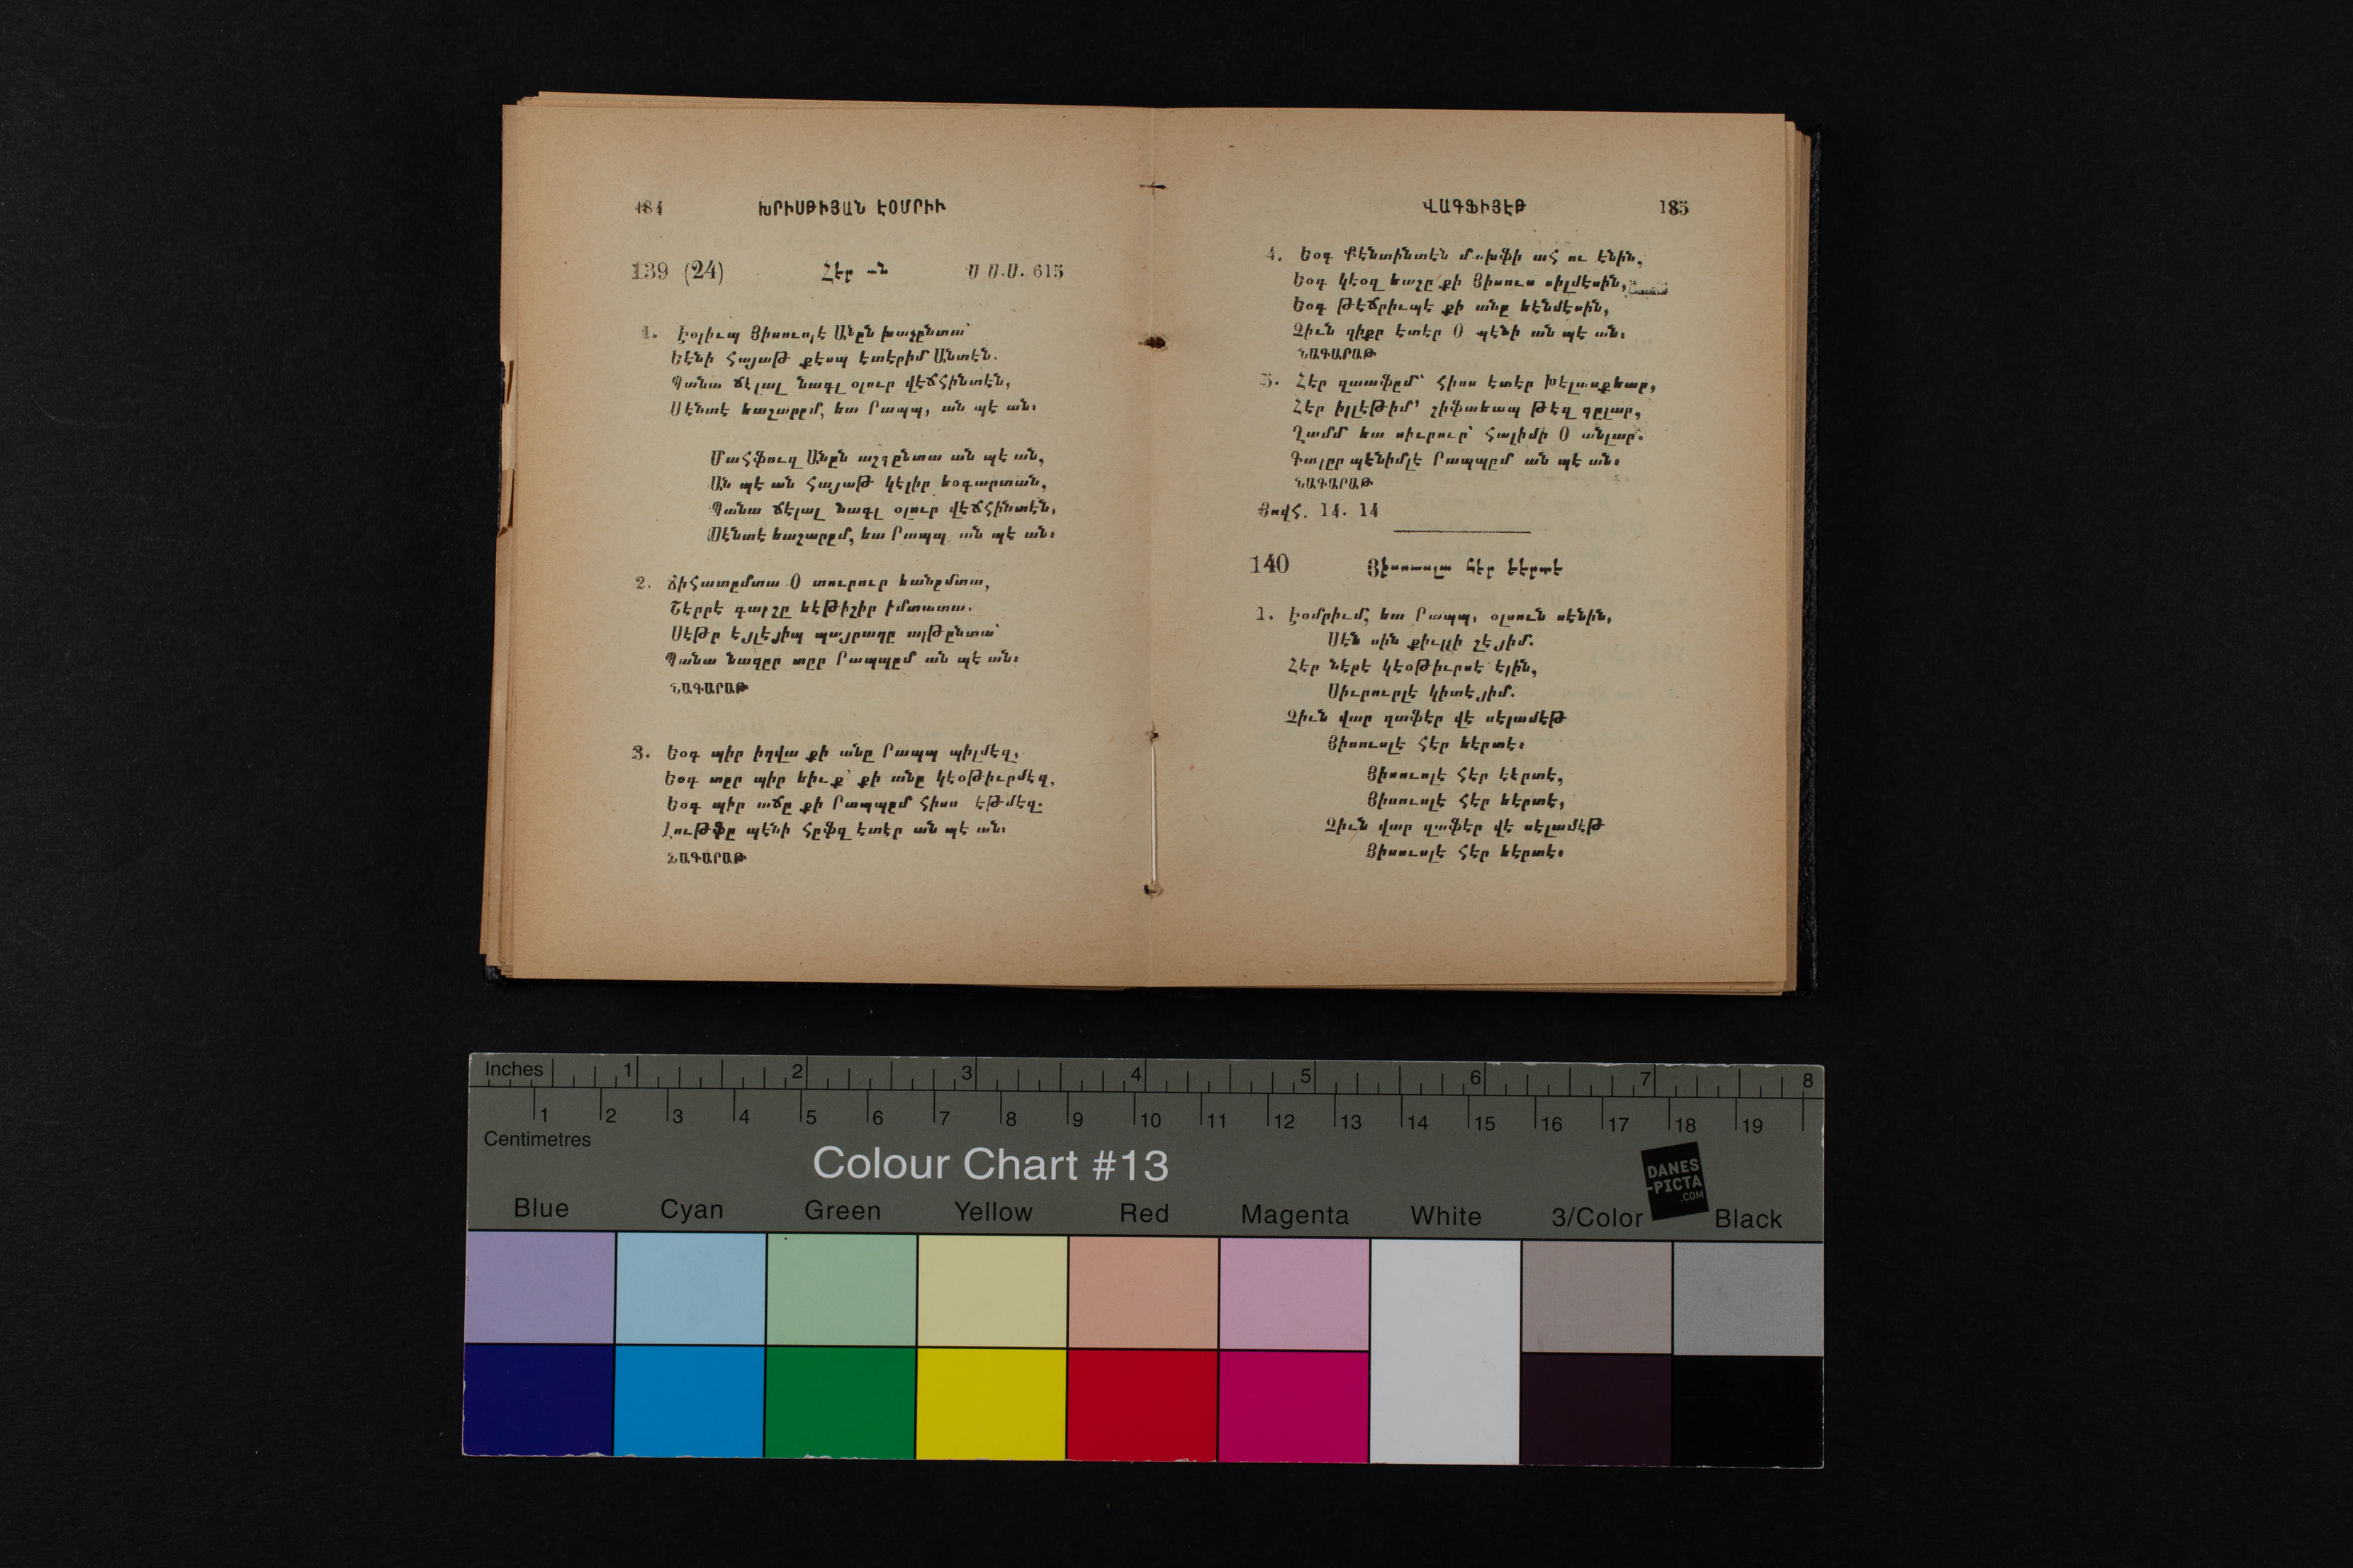 184 ԽՐԻՍԹԻՅԱՆ ԷՕՄՐԻՒ
139 (24) Հէր ան Ս.Ս.Ս. 615
1. Էօլիւպ Յիսուսլէ Անըն խաչընտա՝
Եէնի Հայաթ քեսպ էտէրիմ Անտէն.
Պանա ճէլալ նագլ օլուր վէճՀինտէն,
Սէնտէ եաշարըմ, եա Րապպ, ան պէ ան։
ՄաՀֆուզ Անըն աշգընտա ան պէ ան,
Ան պէ ան Հայաթ կէլիր եօգարտան,
Պանա ճէլալ նագլ օլուր վէճՀինտէն,
Սէնտէ եաշարըմ, եա Րապպ ան պէ ան։
2. ՃիՀատըմտա Օ տուրուր եանըմտա,
Շէրրէ գարշը եէթիշիր իմտատա.
Սէթր էյլէյիպ պայրաղը ալթընտա՝
Պանա նազըր տըր Րապպըմ ան պէ ան։
ՆԱԳԱՐԱԹ
3. Եօգ պիր իղվա քի անը Րապպ պիլմէզ,
Եօգ տըր պիր եիւք՝ քի անը կէօթիւրմէզ,
Եօգ պիր աճը քի Րապպըմ Հիսս էթմէզ.
Լութֆը պէնի Հըֆզ էտէր ան պէ ան։
ՆԱԳԱՐԱԹ
ՎԱԳՖԻՅԷԹ 185
4. Եօգ Քէնտինտէն մախֆի աՀ ու էնին,
Եօգ կէօզ եաշը քի Յիսուս սիլմէսին,
Եօգ թէճրիւպէ քի անը եէնմէսին,
Զիւն զիքր էտէր Օ պէնի ան պէ ան։
ՆԱԳԱՐԱԹ
5. Հէր զաաֆըմ՝ Հիսս էտէր Խէլասքեար,
Հէր իլլէթիմ՝ շիֆաեապ թէզ գըլար,
Ղամմ եա սիւրուր՝ Հալիմի Օ անլար.
Գալըր պէնիմլէ Րապպըմ ան պէ ան։
ՆԱԳԱՐԱԹ
ՅովՀ. 14. 14
140 Յիսուսլա Հէր եէրտէ
1. Էօմրիւմ, եա Րապպ, օլսուն սէնին,
Սէն սին քիւլլի շէյիմ.
Հէր նէրէ կէօթիւրսէ էլին,
Սիւրուրլէ կիտէյիմ.
Զիւն վար զաֆէր վէ սէլամէթ
Յիսուսլէ Հէր եէրտէ։
Յիսուսլէ Հէր եէրտէ,
Յիսուսլէ Հէր եէրտէ,
Զիւն վար զաֆէր վէ սէլամէթ
Յիսուսլէ Հէր եէրտէ։
Inches 1 2 3 4 5 6 7 8
1 2 3 4 5 6 7 8 9 10 11 12 13 14 15 16 17 18 19
Centimetres
Colour Chart #13
DANES
-PICTA
.COM
Blue Cyan Green Yellow Red Magenta White 3/Color Black